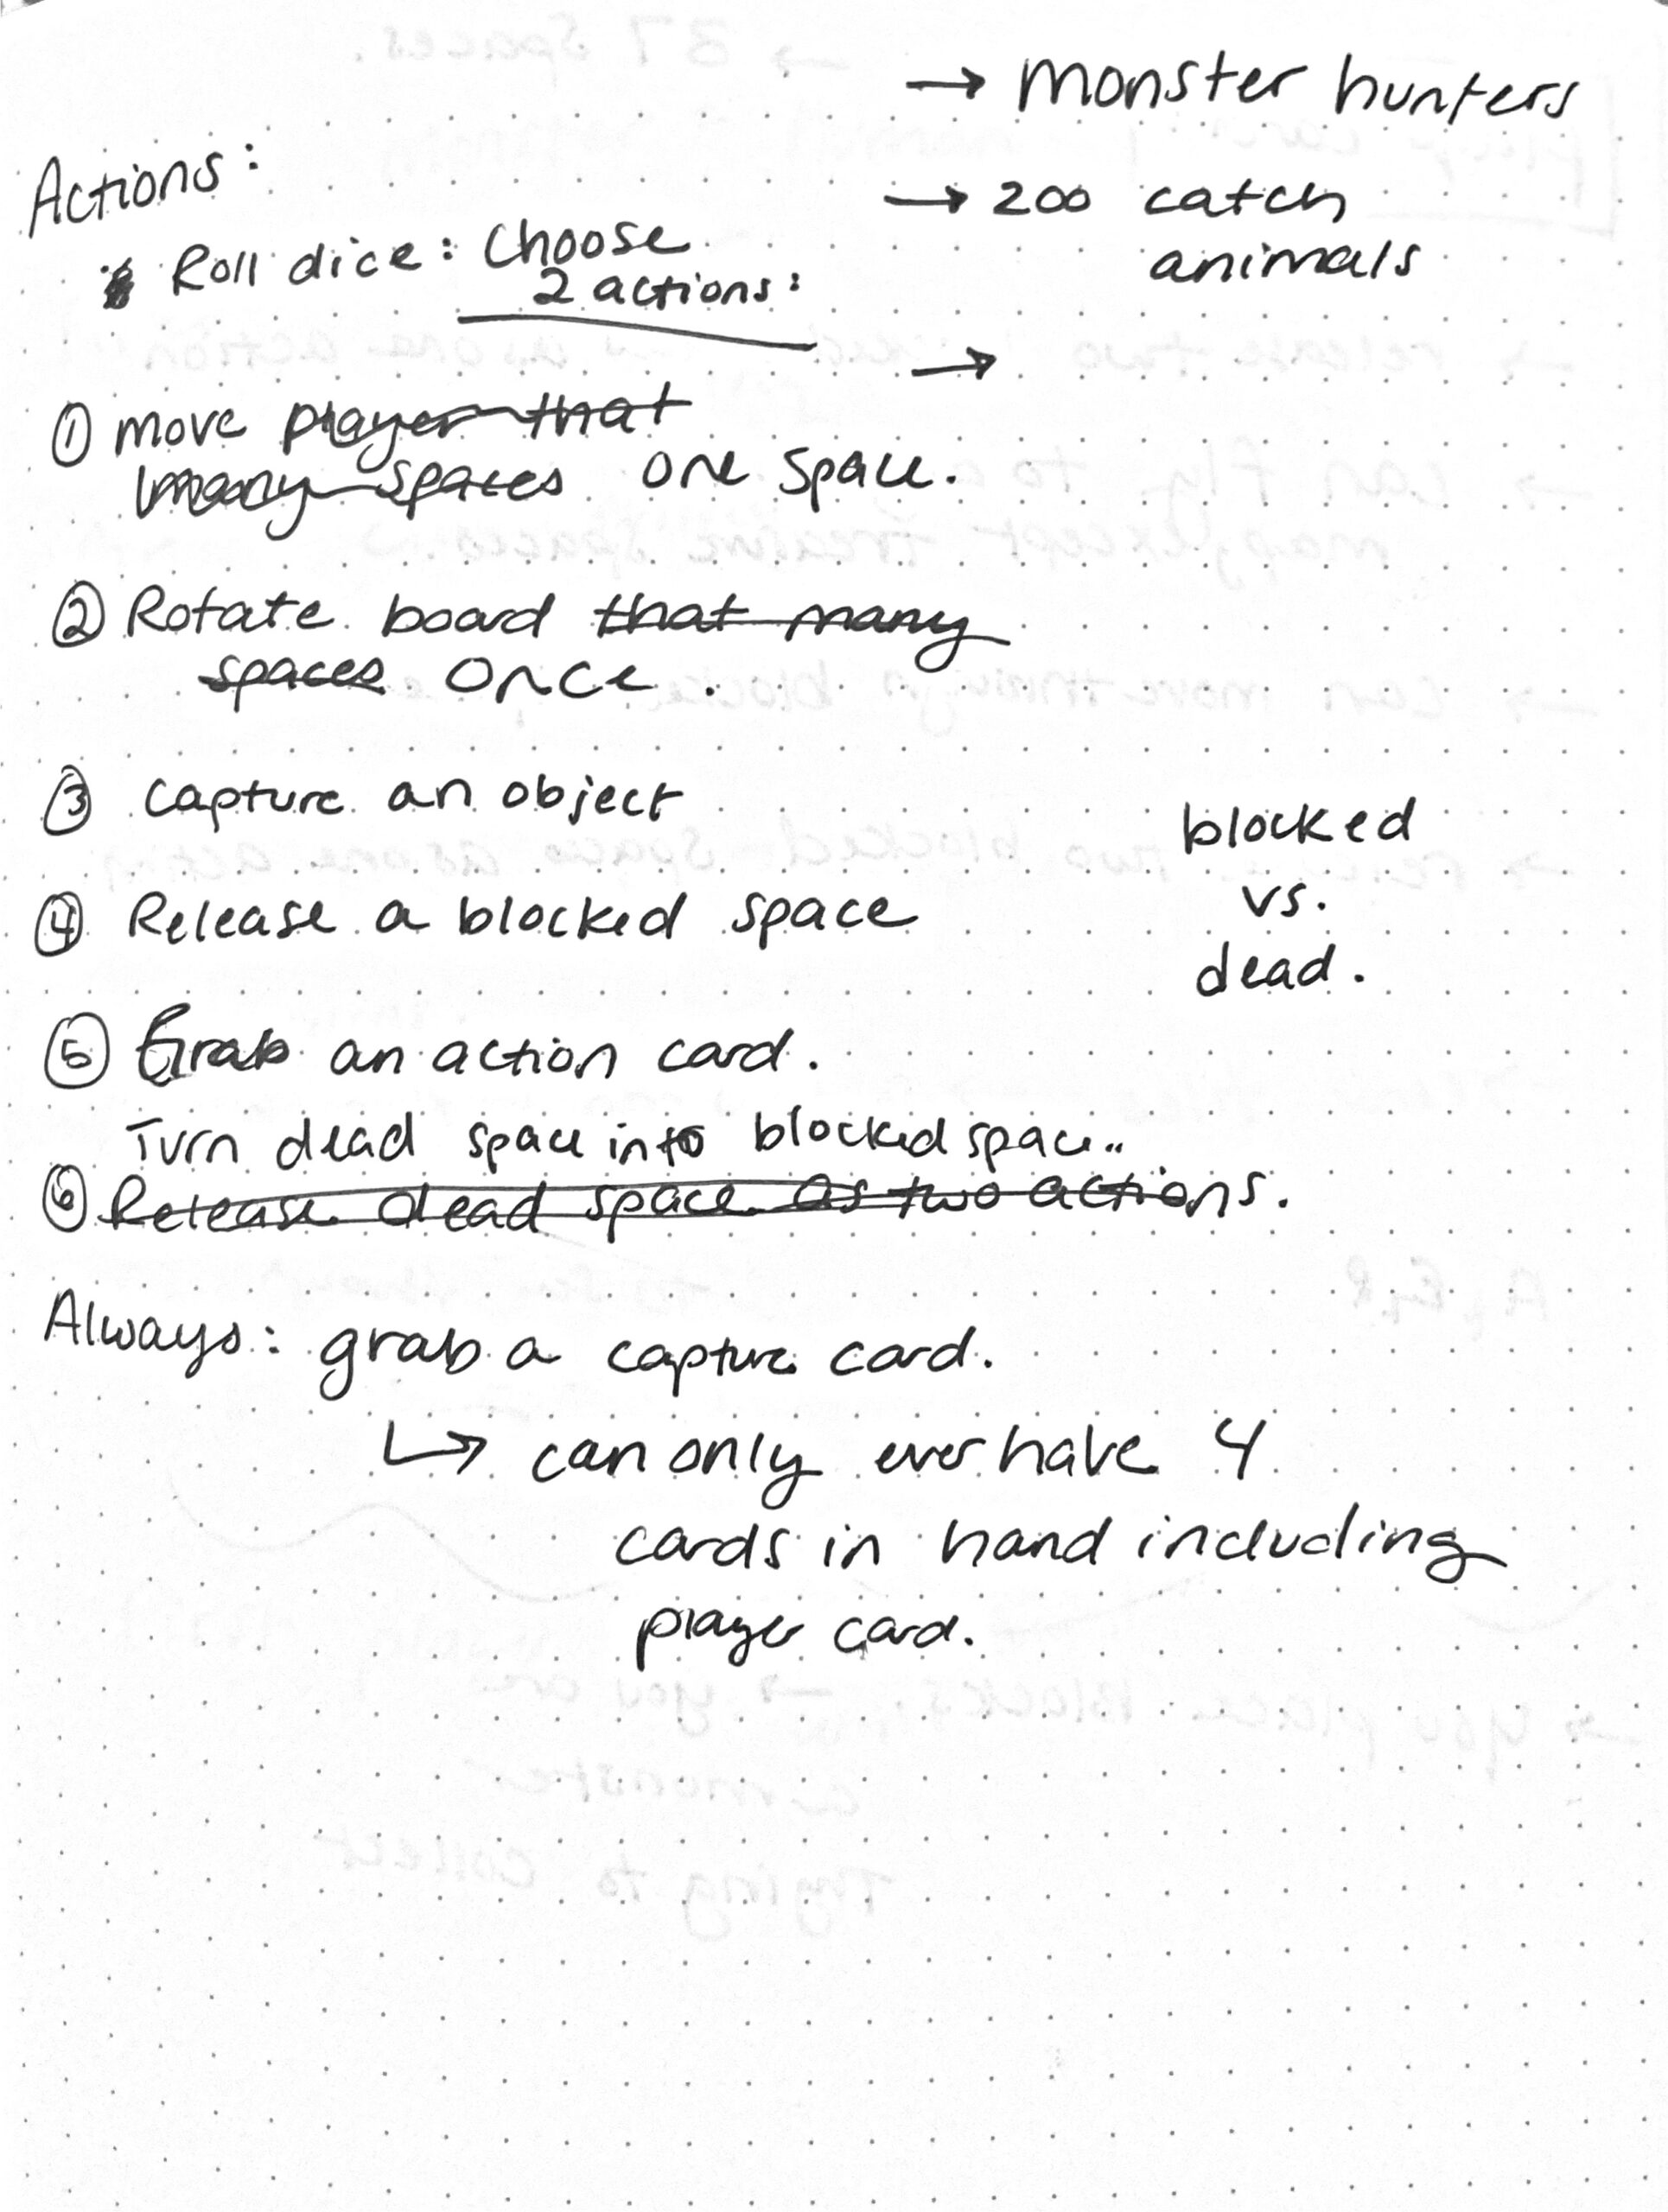 → monster hunters
Actions:
→ 200 catch
animals
Roll dice: Choose
2 actions:
→
① move player that
many spaces one space.
② Rotate board that many
spaces once.
③ capture an object
④ Release a blocked space
blocked
vs.
dead.
⑤ Grab an action card.
Turn dead space into blocked space..
⑥ Release dead space as two actions.
Always: grab a capture card.
↳ can only ever have 4
cards in hand including
player card.